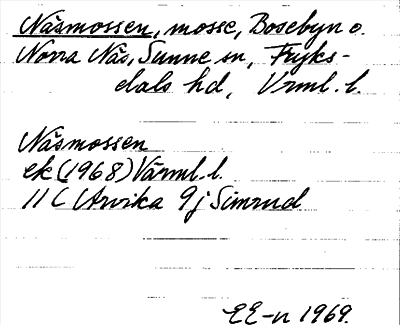 Näsmossen, mosse, Bosebyn o.
Norra Näs, Sunne sn, Fryks-
dals hd, Vrml. l.
Näsmossen
ek (1968) Värml. l.
11 C Arvika 9 j Simrud
EE-n 1969.